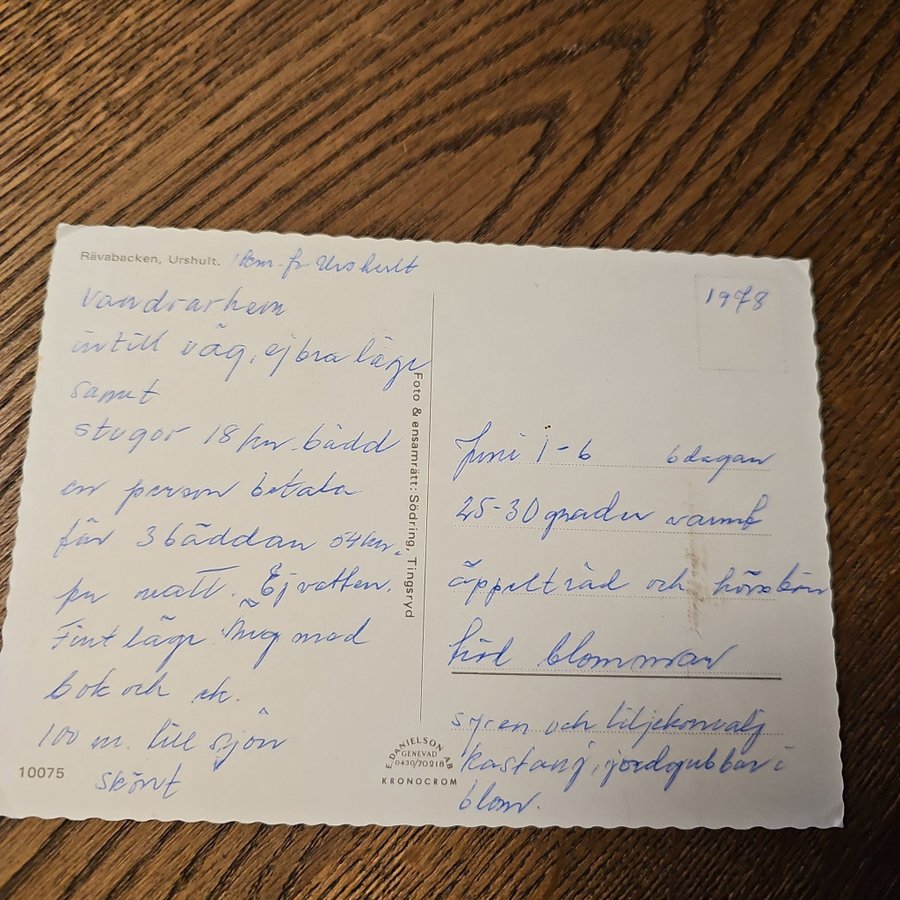 Rävabacken, Urshult. 1 km. fr Urshult
vandrarhem
intill väg, ej bra läge
samt
stugor 18 kr. bädd
en person betala
för 3 bäddar 54 kr.
per natt. Ej vatten.
Fint läge skog med
bok och ek.
100 m. till sjön
skönt
10075
Foto & ensamrätt: Södring, Tingsryd
E. DANIELSON AB
GENEVAD
0430/70218
KRONOCROM
1978
Juni 1-6 6 dagar
25-30 grader varmt
äppelträd och körsbärs
träd blommar
syren och liljekonvalj
Kastanj, jordgubbar i
blom.